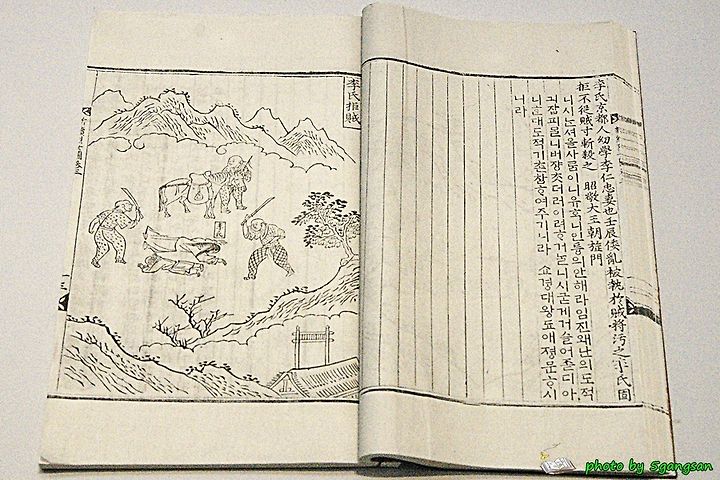 李氏京都人幼學李仁忠妻也壬辰倭亂被執於賊將污之李氏固
拒不從賊寸斬殺之 昭敬大王朝旌門
니시ᄂᆞᆫ셔울사ᄅᆞᆷ이니유ᄒᆞᆨ니인튱의안해라임진왜난의도적
긔잡피믈니버쟝ᄎᆞᆺ더러이려ᄒᆞ거ᄂᆞᆯ니시굳게거슬어좃디아
니ᄒᆞᆫ대도적기촌참ᄒᆞ여주기니라 쇼경대왕됴애졍문ᄒᆞ시
니라
李氏拒賊
photo by Sgangsan